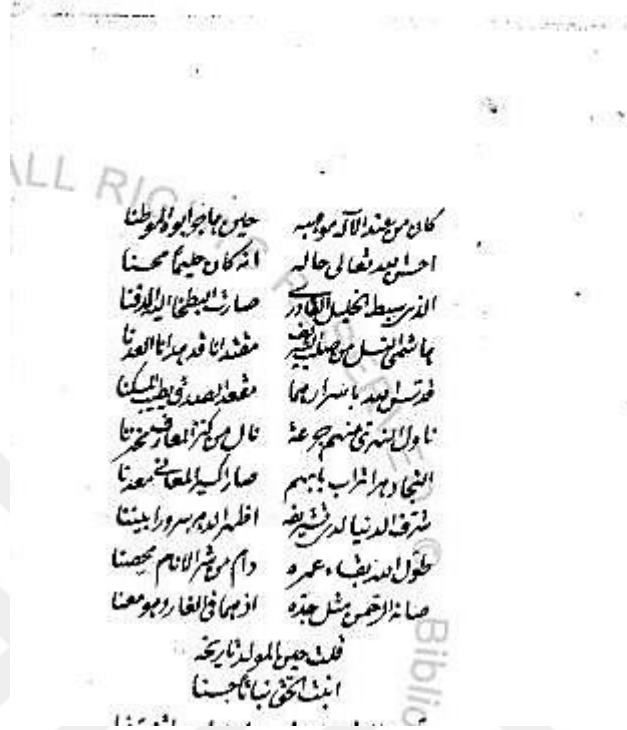 ALL RIGHTS RESERVED © Biblio
كان من عند الاله موهبه حين ما جرا بوه الموطنا
احسن الله تعالى حاله انه كان حليما محسنا
الذى سبط الخليل القادرى صارت البطحا اليه
هاشمى النسل من صلب مقتدانا قد هدانا
قدس الله باسرارهما مقعد الصدق يطيب المسكنا
ناول منهم جرعة نال من كنز المعارف مخزنا
تراب بابهم صار اكسير المعانى معدنا
شرف الدنيا لدى تشريفه اظهر الدهر سرورا بيننا
طول الله بقاء عمره دام من شر الانام محصنا
صانه الرحمن مثل جده اذ هما فى الغار وهو معنا
قلت حين المولد تاريخه
انبت الحق نباتا حسنا